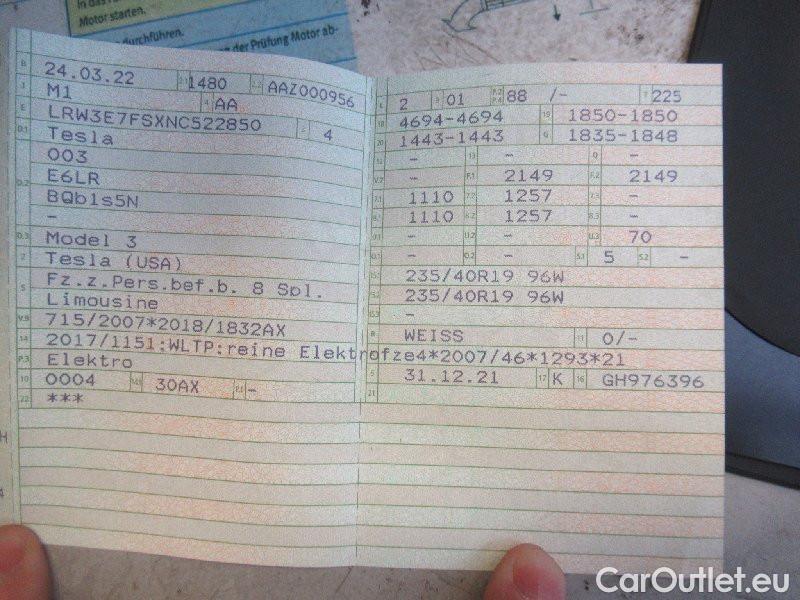 In das
Motor starten.
durchführen.
der Prüfung Motor ab-
B 24.03.22 2.1 1480 2.2 AAZ000956
J M1 4 AA
E LRW3E7FSXNC522850 3 4
D.1 Tesla
003
D.2 E6LR
BQb1s5N
-
D.3 Model 3
2 Tesla (USA)
5 Fz.z.Pers.bef.b. 8 Spl.
Limousine
V.9 715/2007*2018/1832AX
14 2017/1151;WLTP;reine Elektrofz
P.3 Elektro
10 0004 14.1 30AX P.1 -
22 ***
L 2 9 01 P.2 P.4 88 /- T 225
18 4694-4694 19 1850-1850
20 1443-1443 G 1835-1848
12 - 13 - Q -
V.7 - F.1 2149 F.2 2149
7.1 1110 7.2 1257 7.3 -
8.1 1110 8.2 1257 8.3 -
U.1 - U.2 - U.3 70
O.1 - O.2 - S.1 5 S.2 -
15.1 235/40R19 96W
15.2 235/40R19 96W
15.3 -
R WEISS 11 0/-
K e4*2007/46*1293*21
6 31.12.21 17 K 16 GH976396
21
CarOutlet.eu